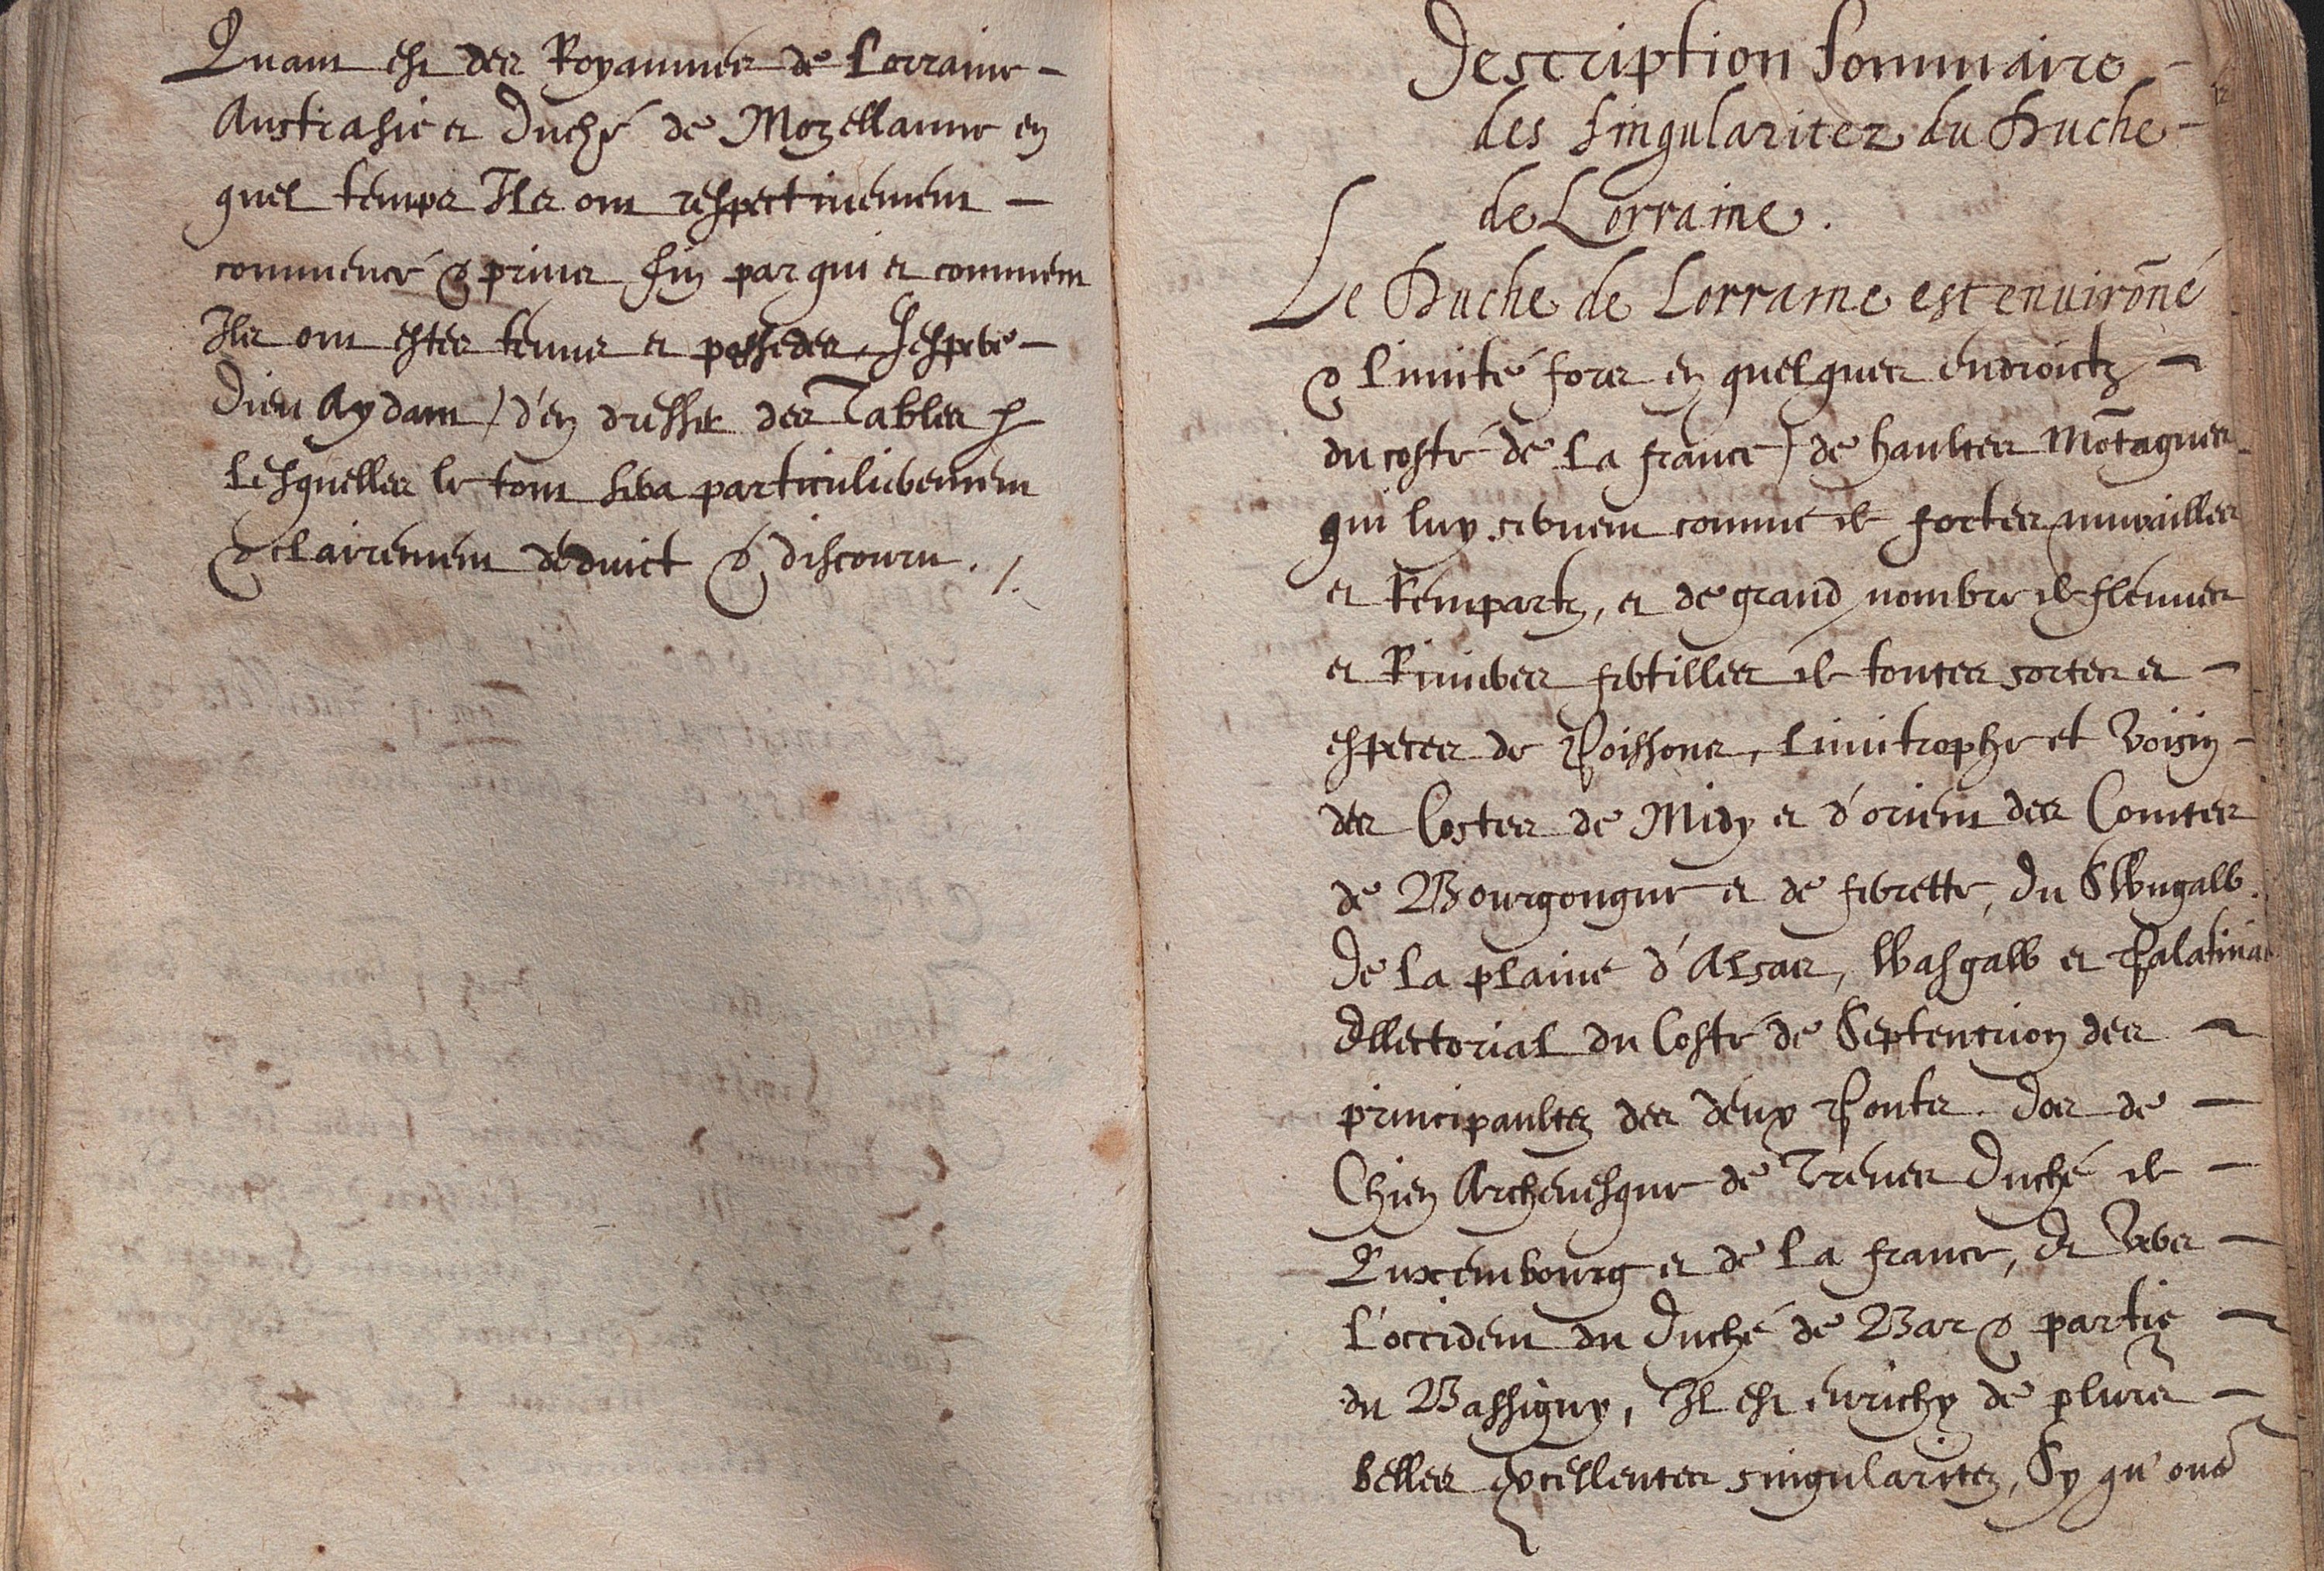 Quant est des Royaumes de Lorraine
Austrasie et Duché de Mozellanne en
quel temps Ils ont respectiuement
commencé & prins fin par qui et comment
Ils ont estez tenus et possedez, J'espere
Dieu Aydant, d'en dresser des Tables p
Lesquelles le tout sera particulierement
& clairement deduict & discouru. /.
Description Sommaire
des singularitez du Duche
de Lorraine.
Le Duche de Lorraine est enuirõné
& Limité fors en quelques endroictz
du costé de La france, de haultes Mõtagnes
qui luy seruent comme de fortes murailles
et Rempartz, et de grand nombre de fleuues
et Riuieres fertilles de toutes sortes et
especes de Poissons, Limitrophe et Voisin
des Costez de Midy et d'orient des Comtez
de Bourgongne et de ferrette, du SWngaW.
De La plaine d'Alsas, WasgaW et Palatinat
Ellectorial du Costé de Septentrion des
principaultez des deux Ponts. Dos de
Chien Archeuesque de Treues Duché de
Luxembourg et de La france, Et Vers
L'occident du Duché de Bar & partie
du Bassigny, Il est enrichy de plusrs
belles excellentes singularitez, Sy qu'oultre